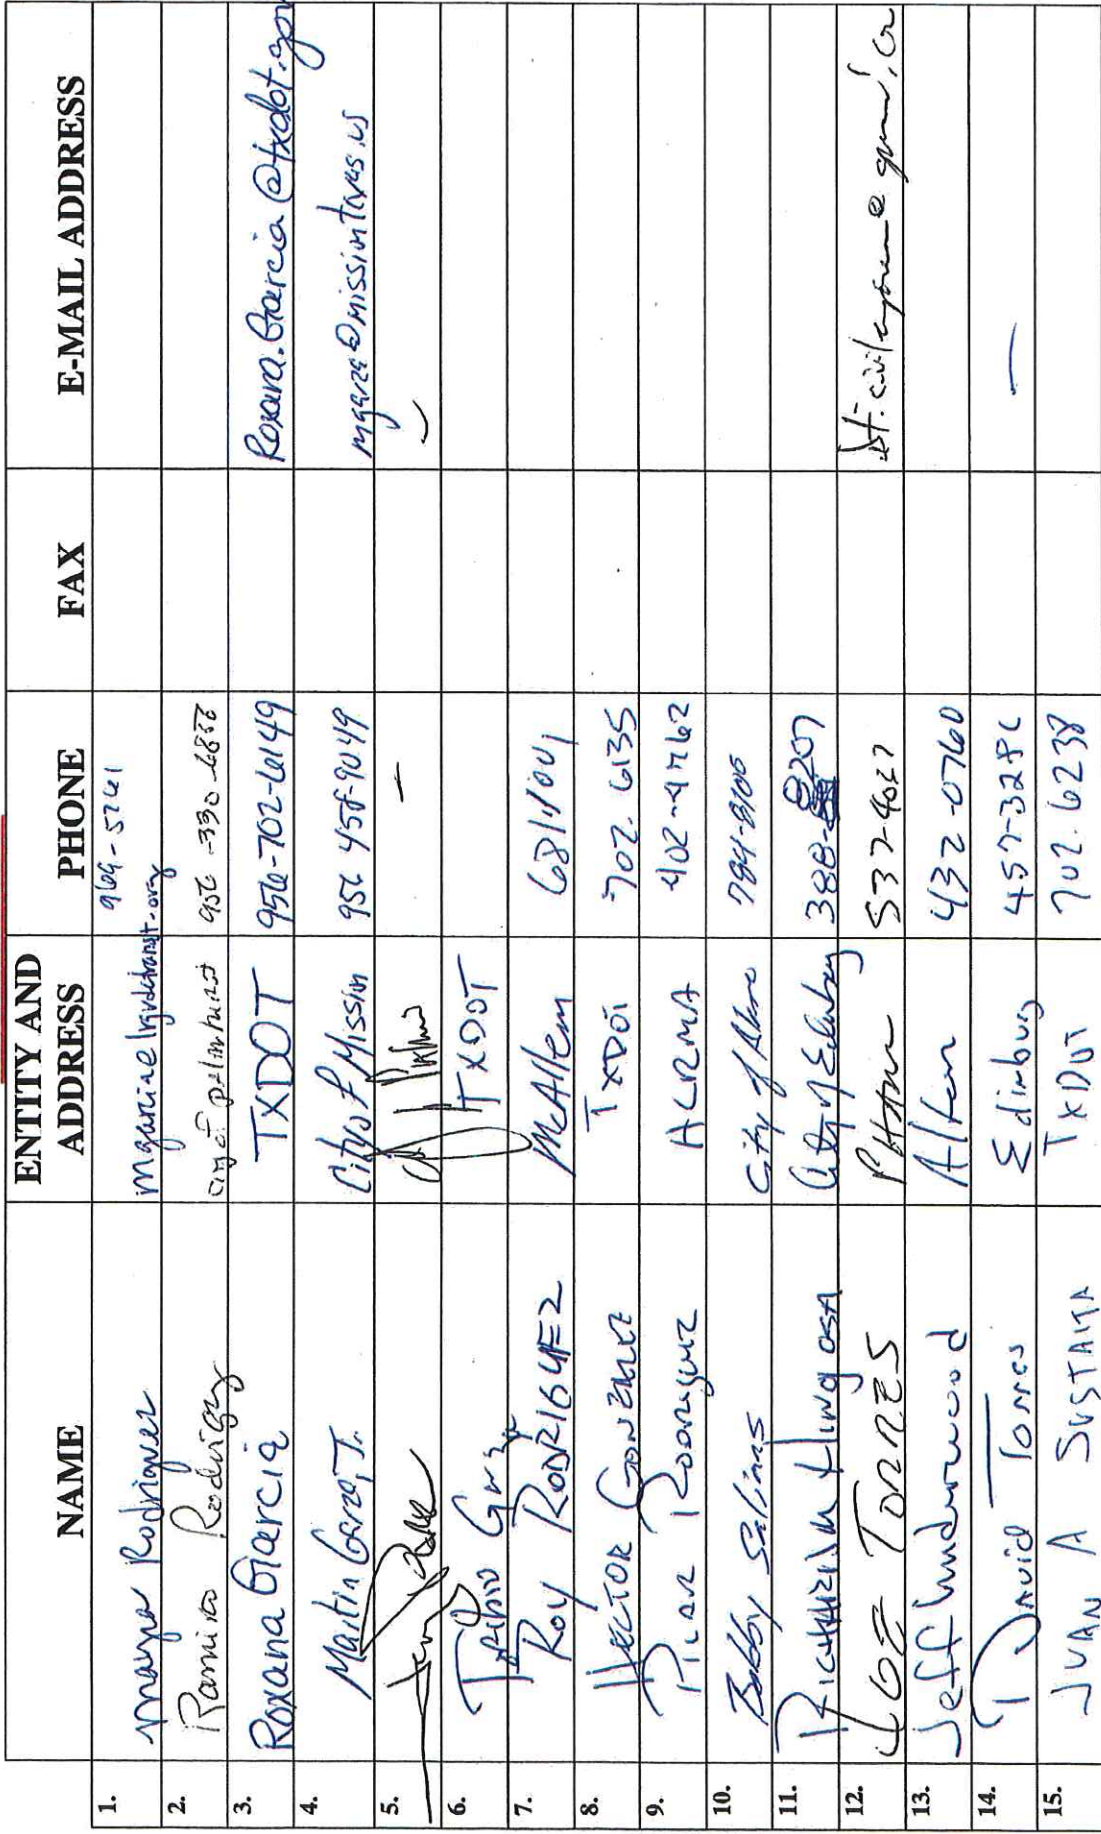 NAME ENTITY AND ADDRESS PHONE FAX E-MAIL ADDRESS
1. Maya Rodriguez 969-5761
2. Ramiro Rodriguez 956-330-
3. Roxana Garcia TXDOT 956-702-6149 Roxana.Garcia@txdot.gov
4. Martin Garza, Jr. City of Mission 956 458-9049 mgarza@missiontexas.us
5. —
6. Toribio Garza TXDOT
7. Roy RODRIGUEZ McAllen 6811001
8. HECTOR GONZALEZ TXDOT 702.6135
9. PILAR RODRIGUEZ HCRMA 402-4762
10. Bobby Salinas City of Alamo
11. Hinojosa City of Edinburg 388-8207
12. JOE TORRES 537-4027
13. Jeff Underwood Alton 432-0760
14. DAVID Torres Edinburg 457-3286 —
15. JUAN A SUSTAITA TXDOT 702.6238